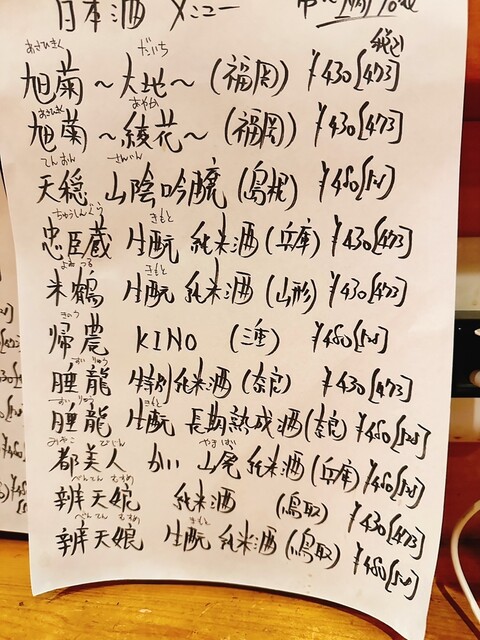 日本酒 メニュー
税込
あさひきく だいち
旭菊 ～大地～ (福岡) ¥430[473]
あさひきく あやか
旭菊 ～綾花～ (福岡) ¥430[473]
てんおん さんいん
天穏 山陰吟醸 (島根) ¥480[528]
ちゅうしんぐら きもと
忠臣蔵 生酛 純米酒 (兵庫) ¥430[473]
よねつる きもと
米鶴 生酛 純米酒 (山形) ¥430[473]
きのう
帰農 KINO (三重) ¥480[528]
すいりゅう
睡龍 特別純米酒 (奈良) ¥430[473]
すいりゅう きもと
睡龍 生酛 長期熟成酒 (奈良) ¥480[528]
みやこ びじん やまはい
都美人 山廃 純米酒 (兵庫) ¥480[528]
べんてん むすめ
辨天娘 純米酒 (鳥取) ¥430[473]
べんてん むすめ きもと
辨天娘 生酛 純米酒 (鳥取) ¥480[528]